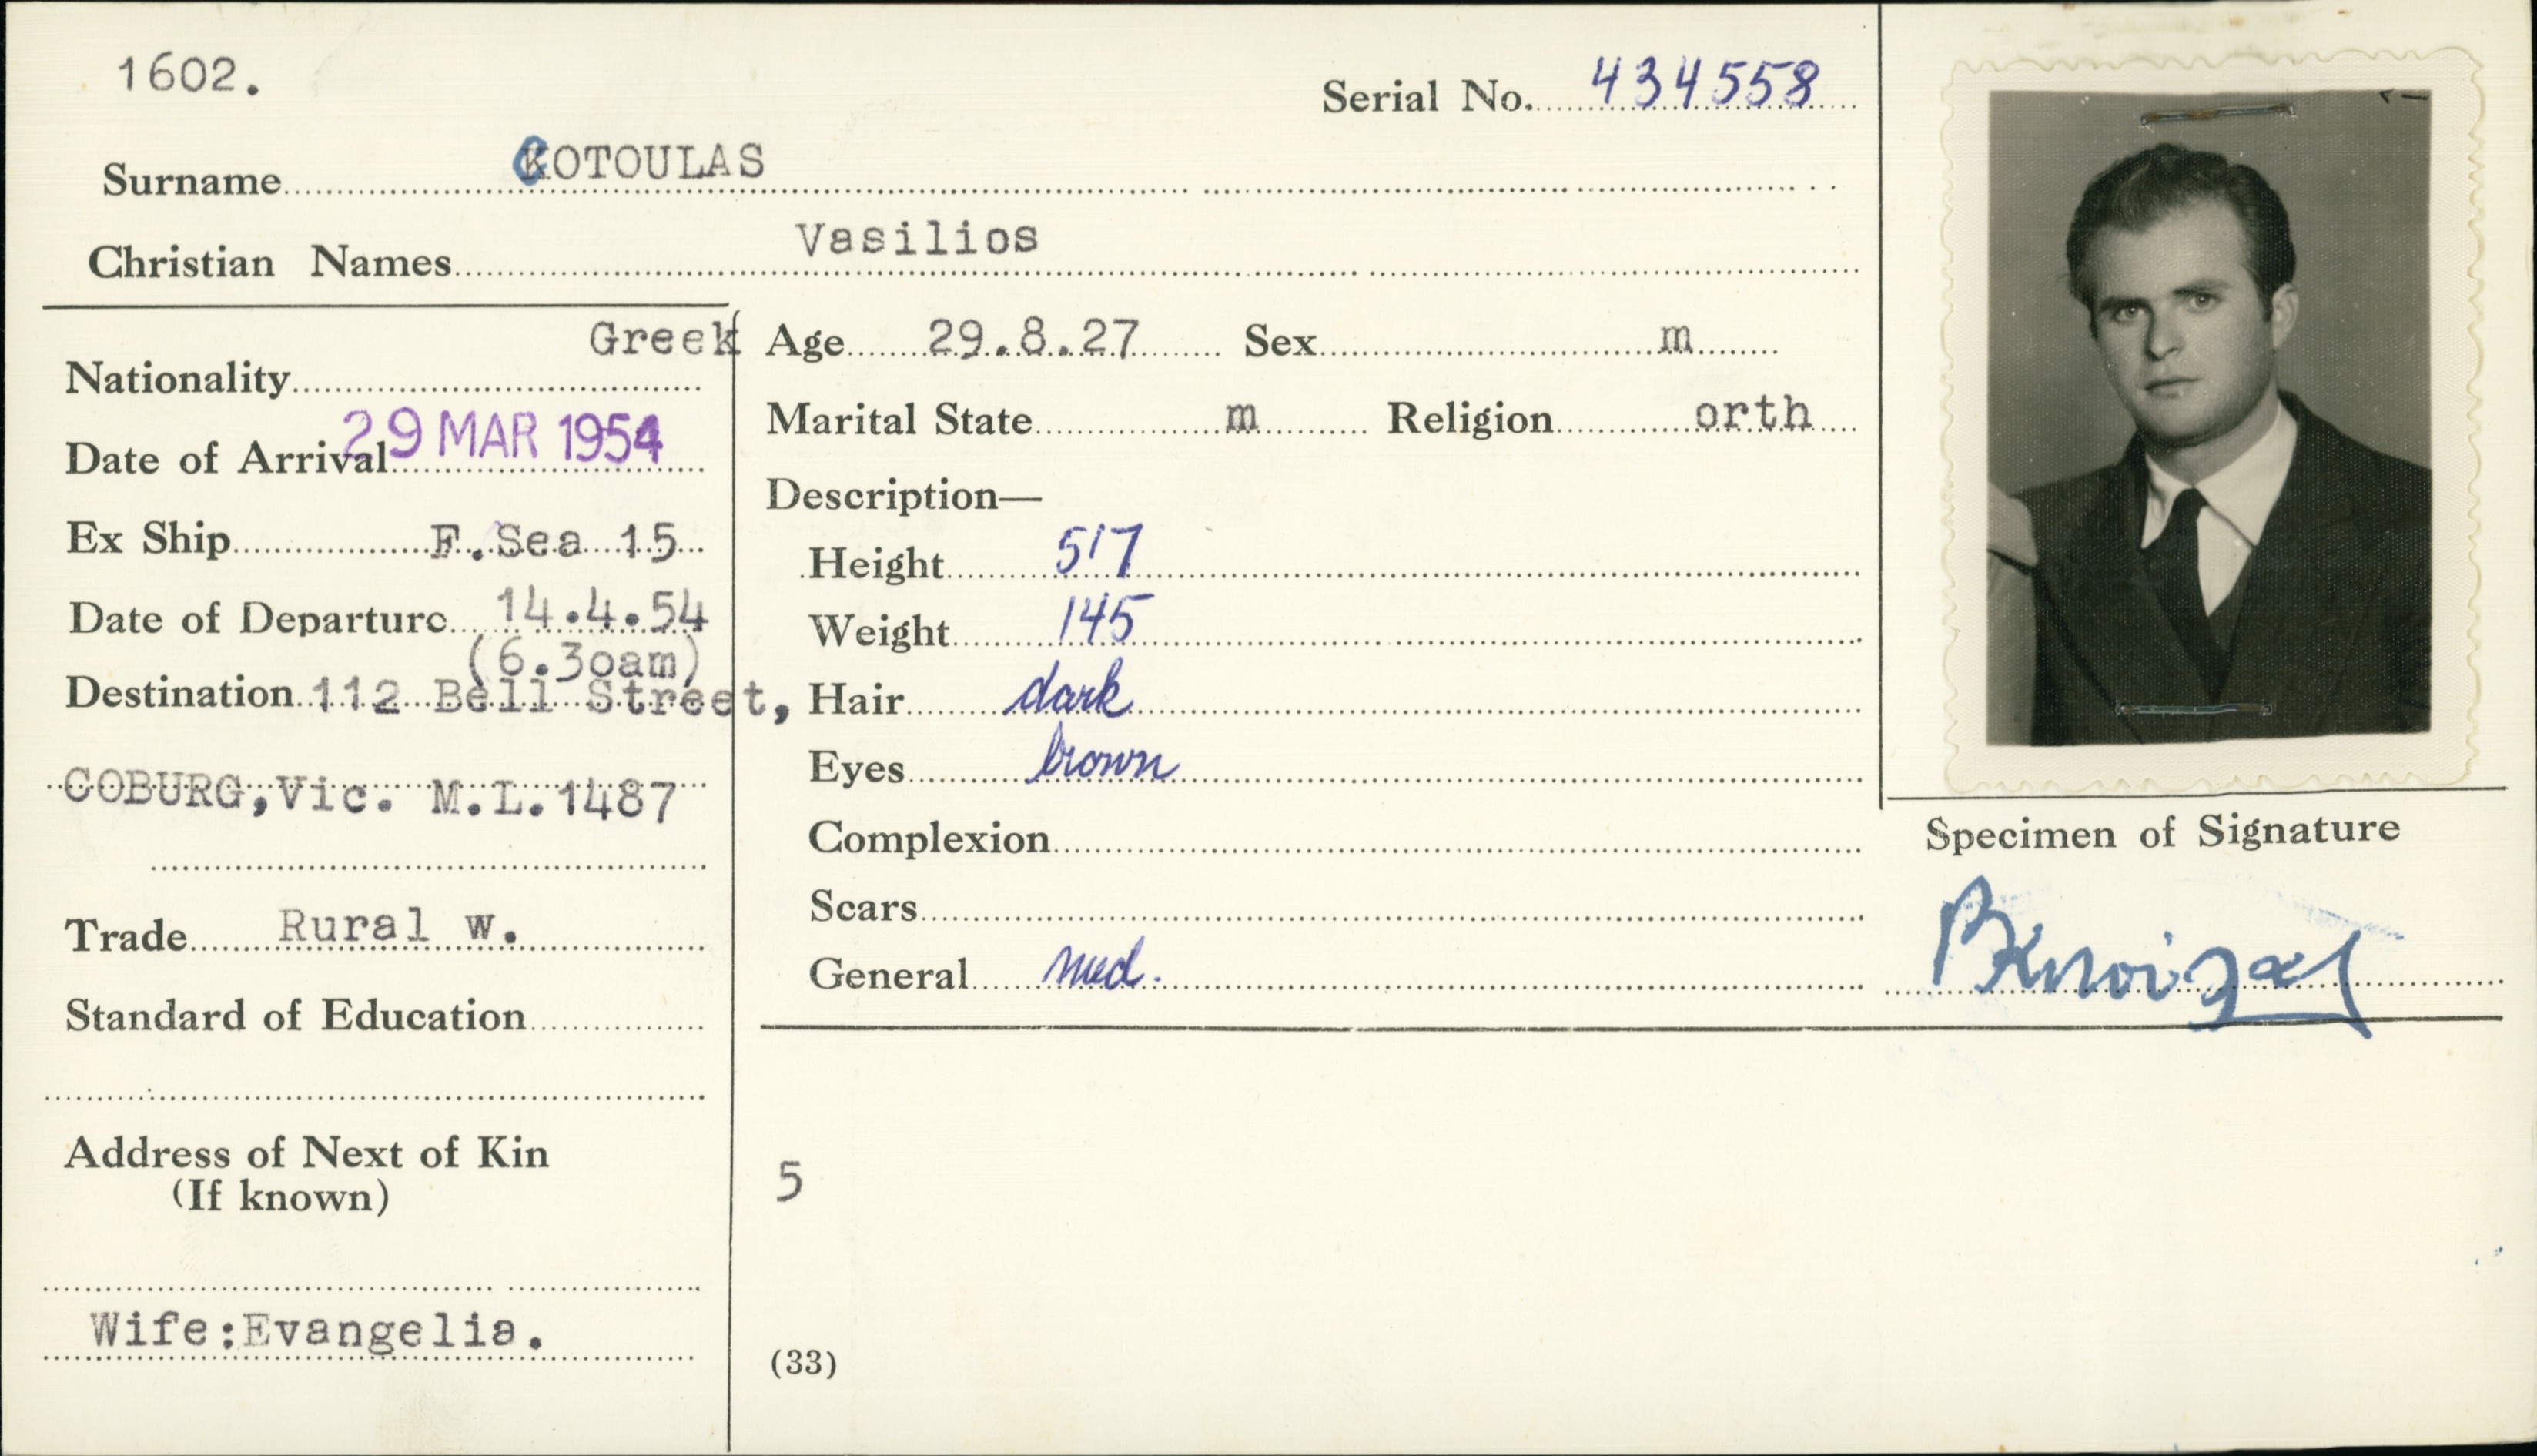 1602.
Serial No. 434558
Surname COTOULAS
Christian Names Vasilios
Nationality Greek
Date of Arrival 29 MAR 1954
Ex Ship F.Sea 15
Date of Departure 14.4.54
(6.30am)
Destination 112 Bell Street,
COBURG,Vic. M.L.1487
Trade Rural w.
Standard of Education
Address of Next of Kin
(If known)
Wife:Evangelia.
Age 29.8.27 Sex m
Marital State m Religion orth
Description—
Height 5'7
Weight 145
Hair dark
Eyes brown
Complexion
Scars
General med.
5
(33)
Specimen of Signature